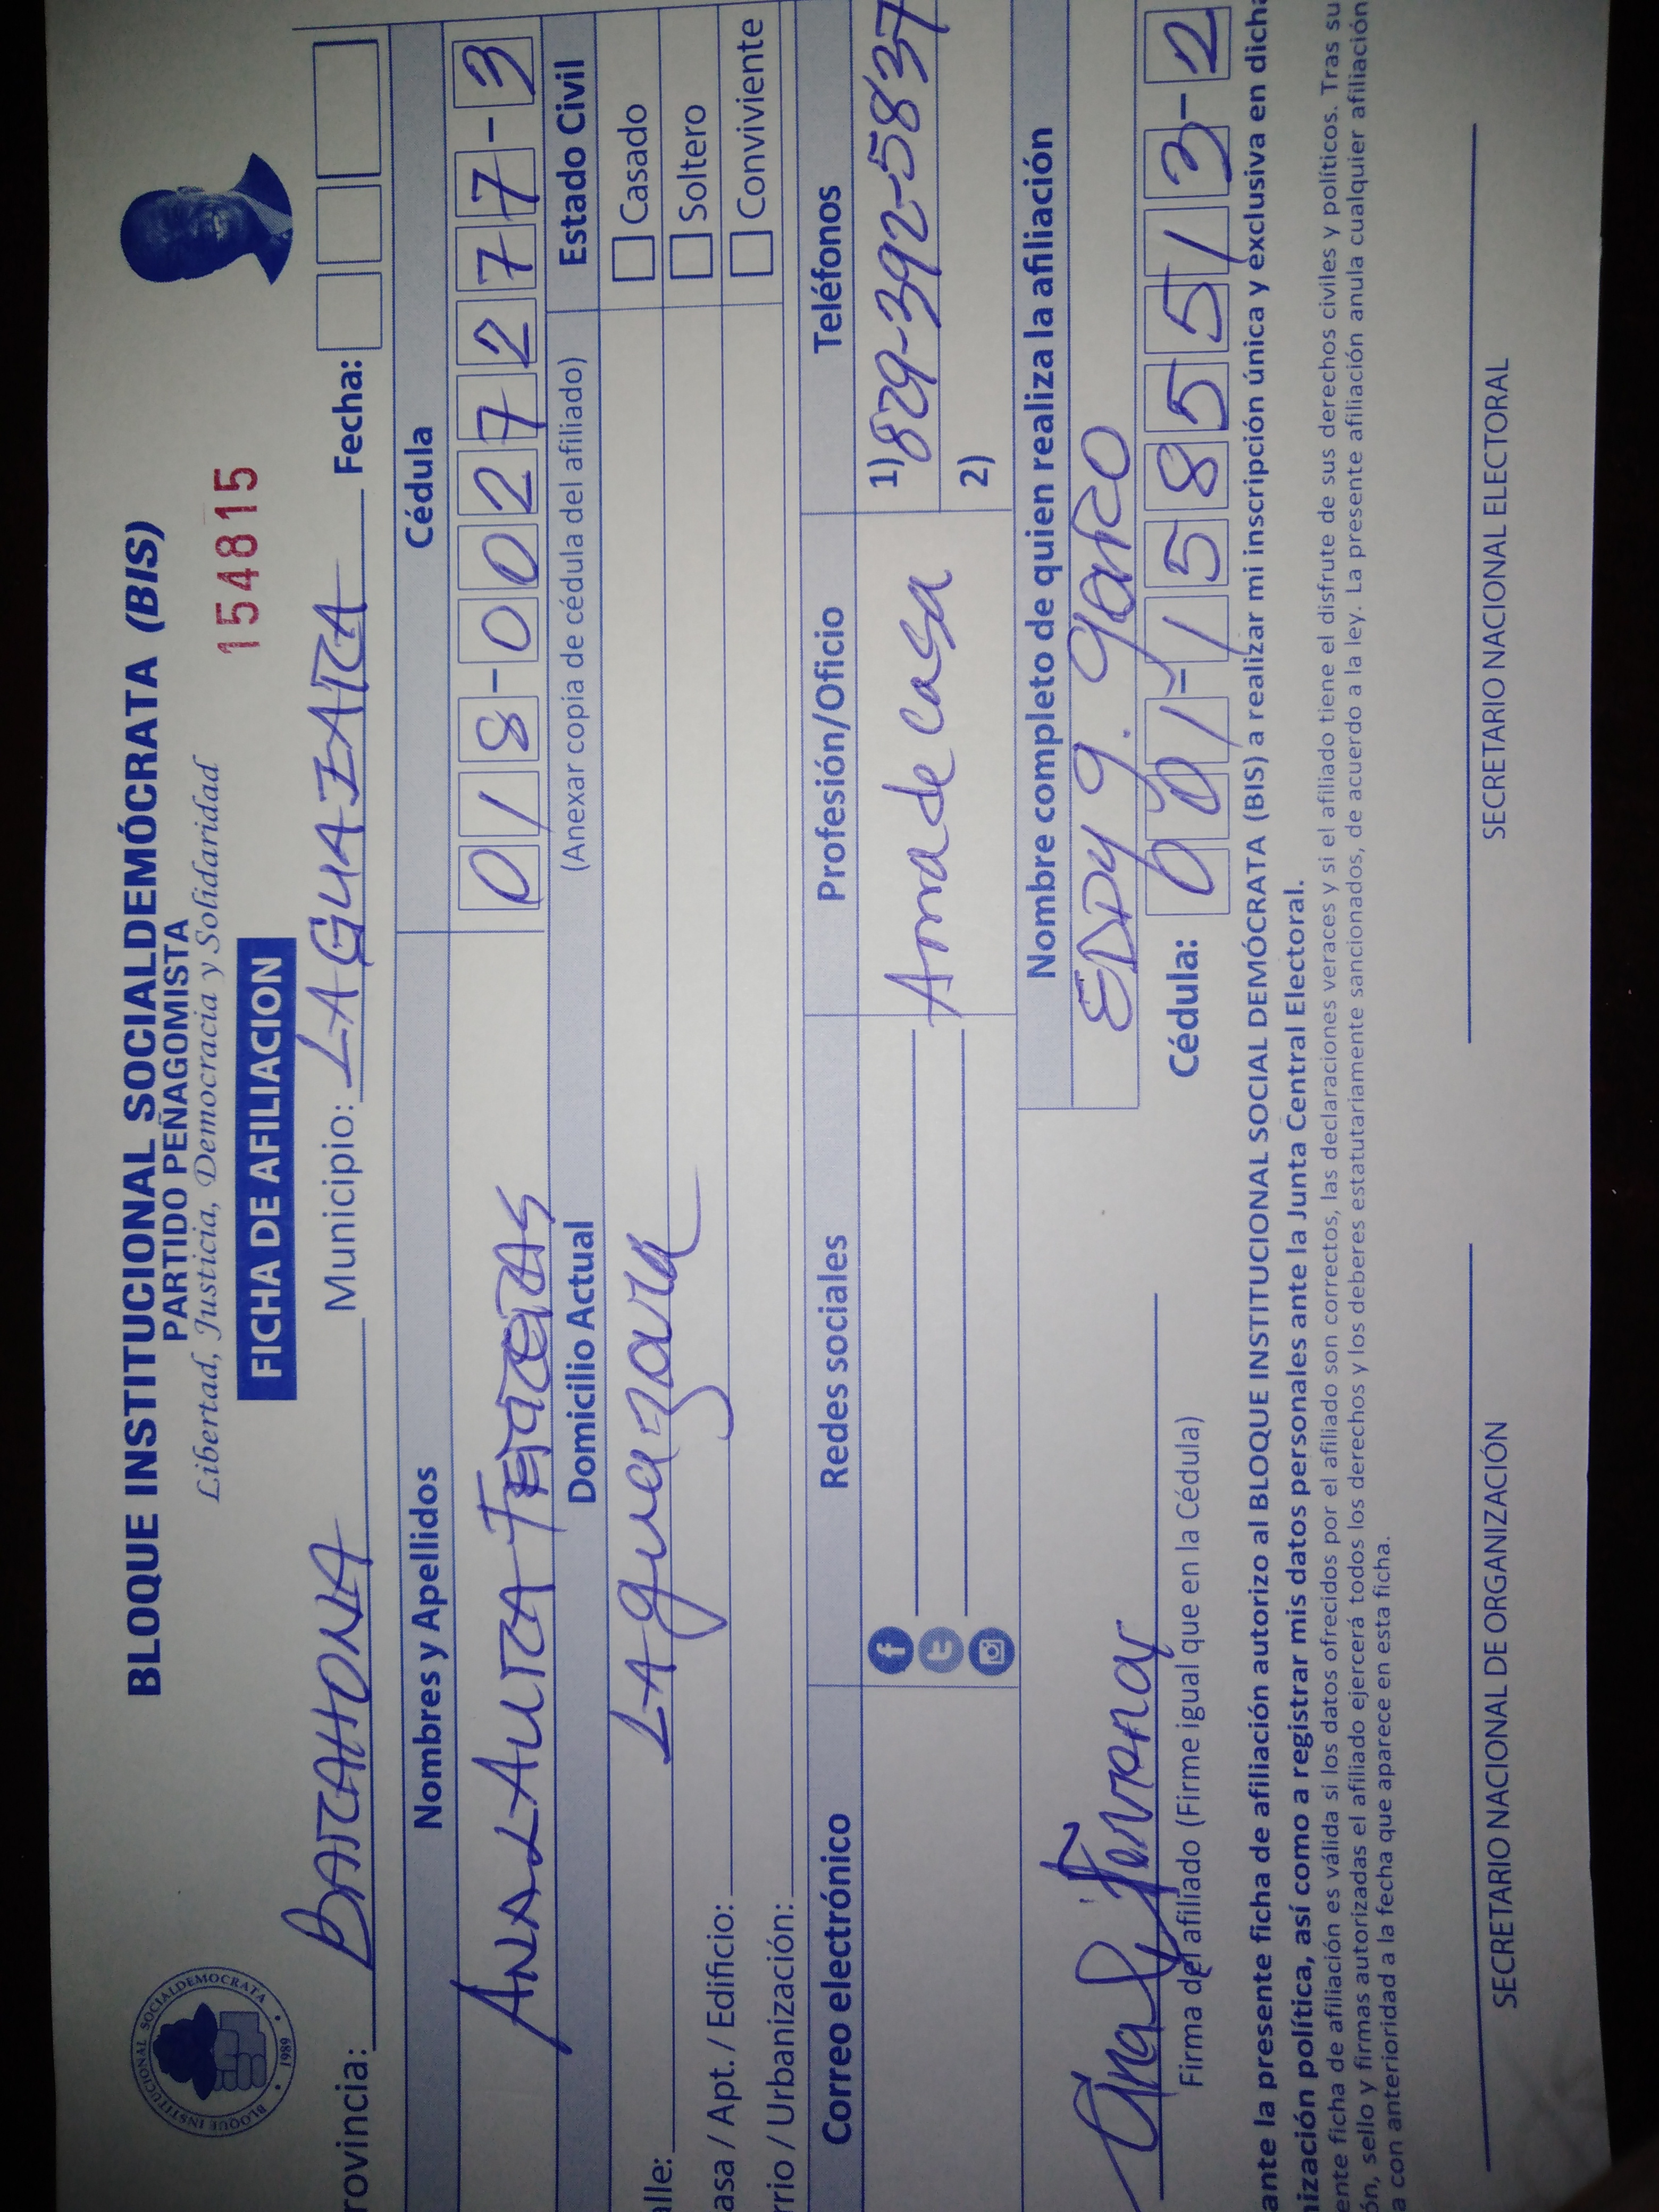 BLOQUE INSTITUCIONAL SOCIALDEMÓCRATA (BIS)
PARTIDO PEÑAGOMISTA
Libertad, Justicia, Democracia y Solidaridad
154815
FICHA DE AFILIACION
BLOQUE INSTITUCIONAL SOCIALDEMOCRATA
1989
rovincia: BARAHONA Municipio: LAGUAZARA Fecha:
Nombres y Apellidos Cédula
ANA LAURA FERRERAS 018-0027277-3
Domicilio Actual (Anexar copia de cédula del afiliado) Estado Civil
alle: LAguazara Casado
asa / Apt. / Edificio: Soltero
rrio / Urbanización: Conviviente
Correo electrónico Redes sociales Profesión/Oficio Teléfonos
Ama de casa 1) 829-392-5837
2)
Nombre completo de quien realiza la afiliación
EDDy y.
Cédula: 001-1585513-2
Firma del afiliado (Firme igual que en la Cédula)
ante la presente ficha de afiliación autorizo al BLOQUE INSTITUCIONAL SOCIAL DEMÓCRATA (BIS) a realizar mi inscripción única y exclusiva en dicha
nización política, así como a registrar mis datos personales ante la Junta Central Electoral.
ente ficha de afiliación es válida si los datos ofrecidos por el afiliado son correctos, las declaraciones veraces y si el afiliado tiene el disfrute de sus derechos civiles y políticos. Tras su
ón, sello y firmas autorizadas el afiliado ejercerá todos los derechos y los deberes estatutariamente sancionados, de acuerdo a la ley. La presente afiliación anula cualquier afiliación
a con anterioridad a la fecha que aparece en esta ficha.
SECRETARIO NACIONAL DE ORGANIZACIÓN SECRETARIO NACIONAL ELECTORAL